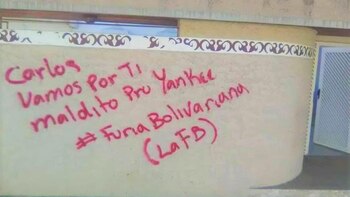 Carlos
Vamos Por Ti
maldito Pro Yankee
#FuriaBolivariana
(LaFB)